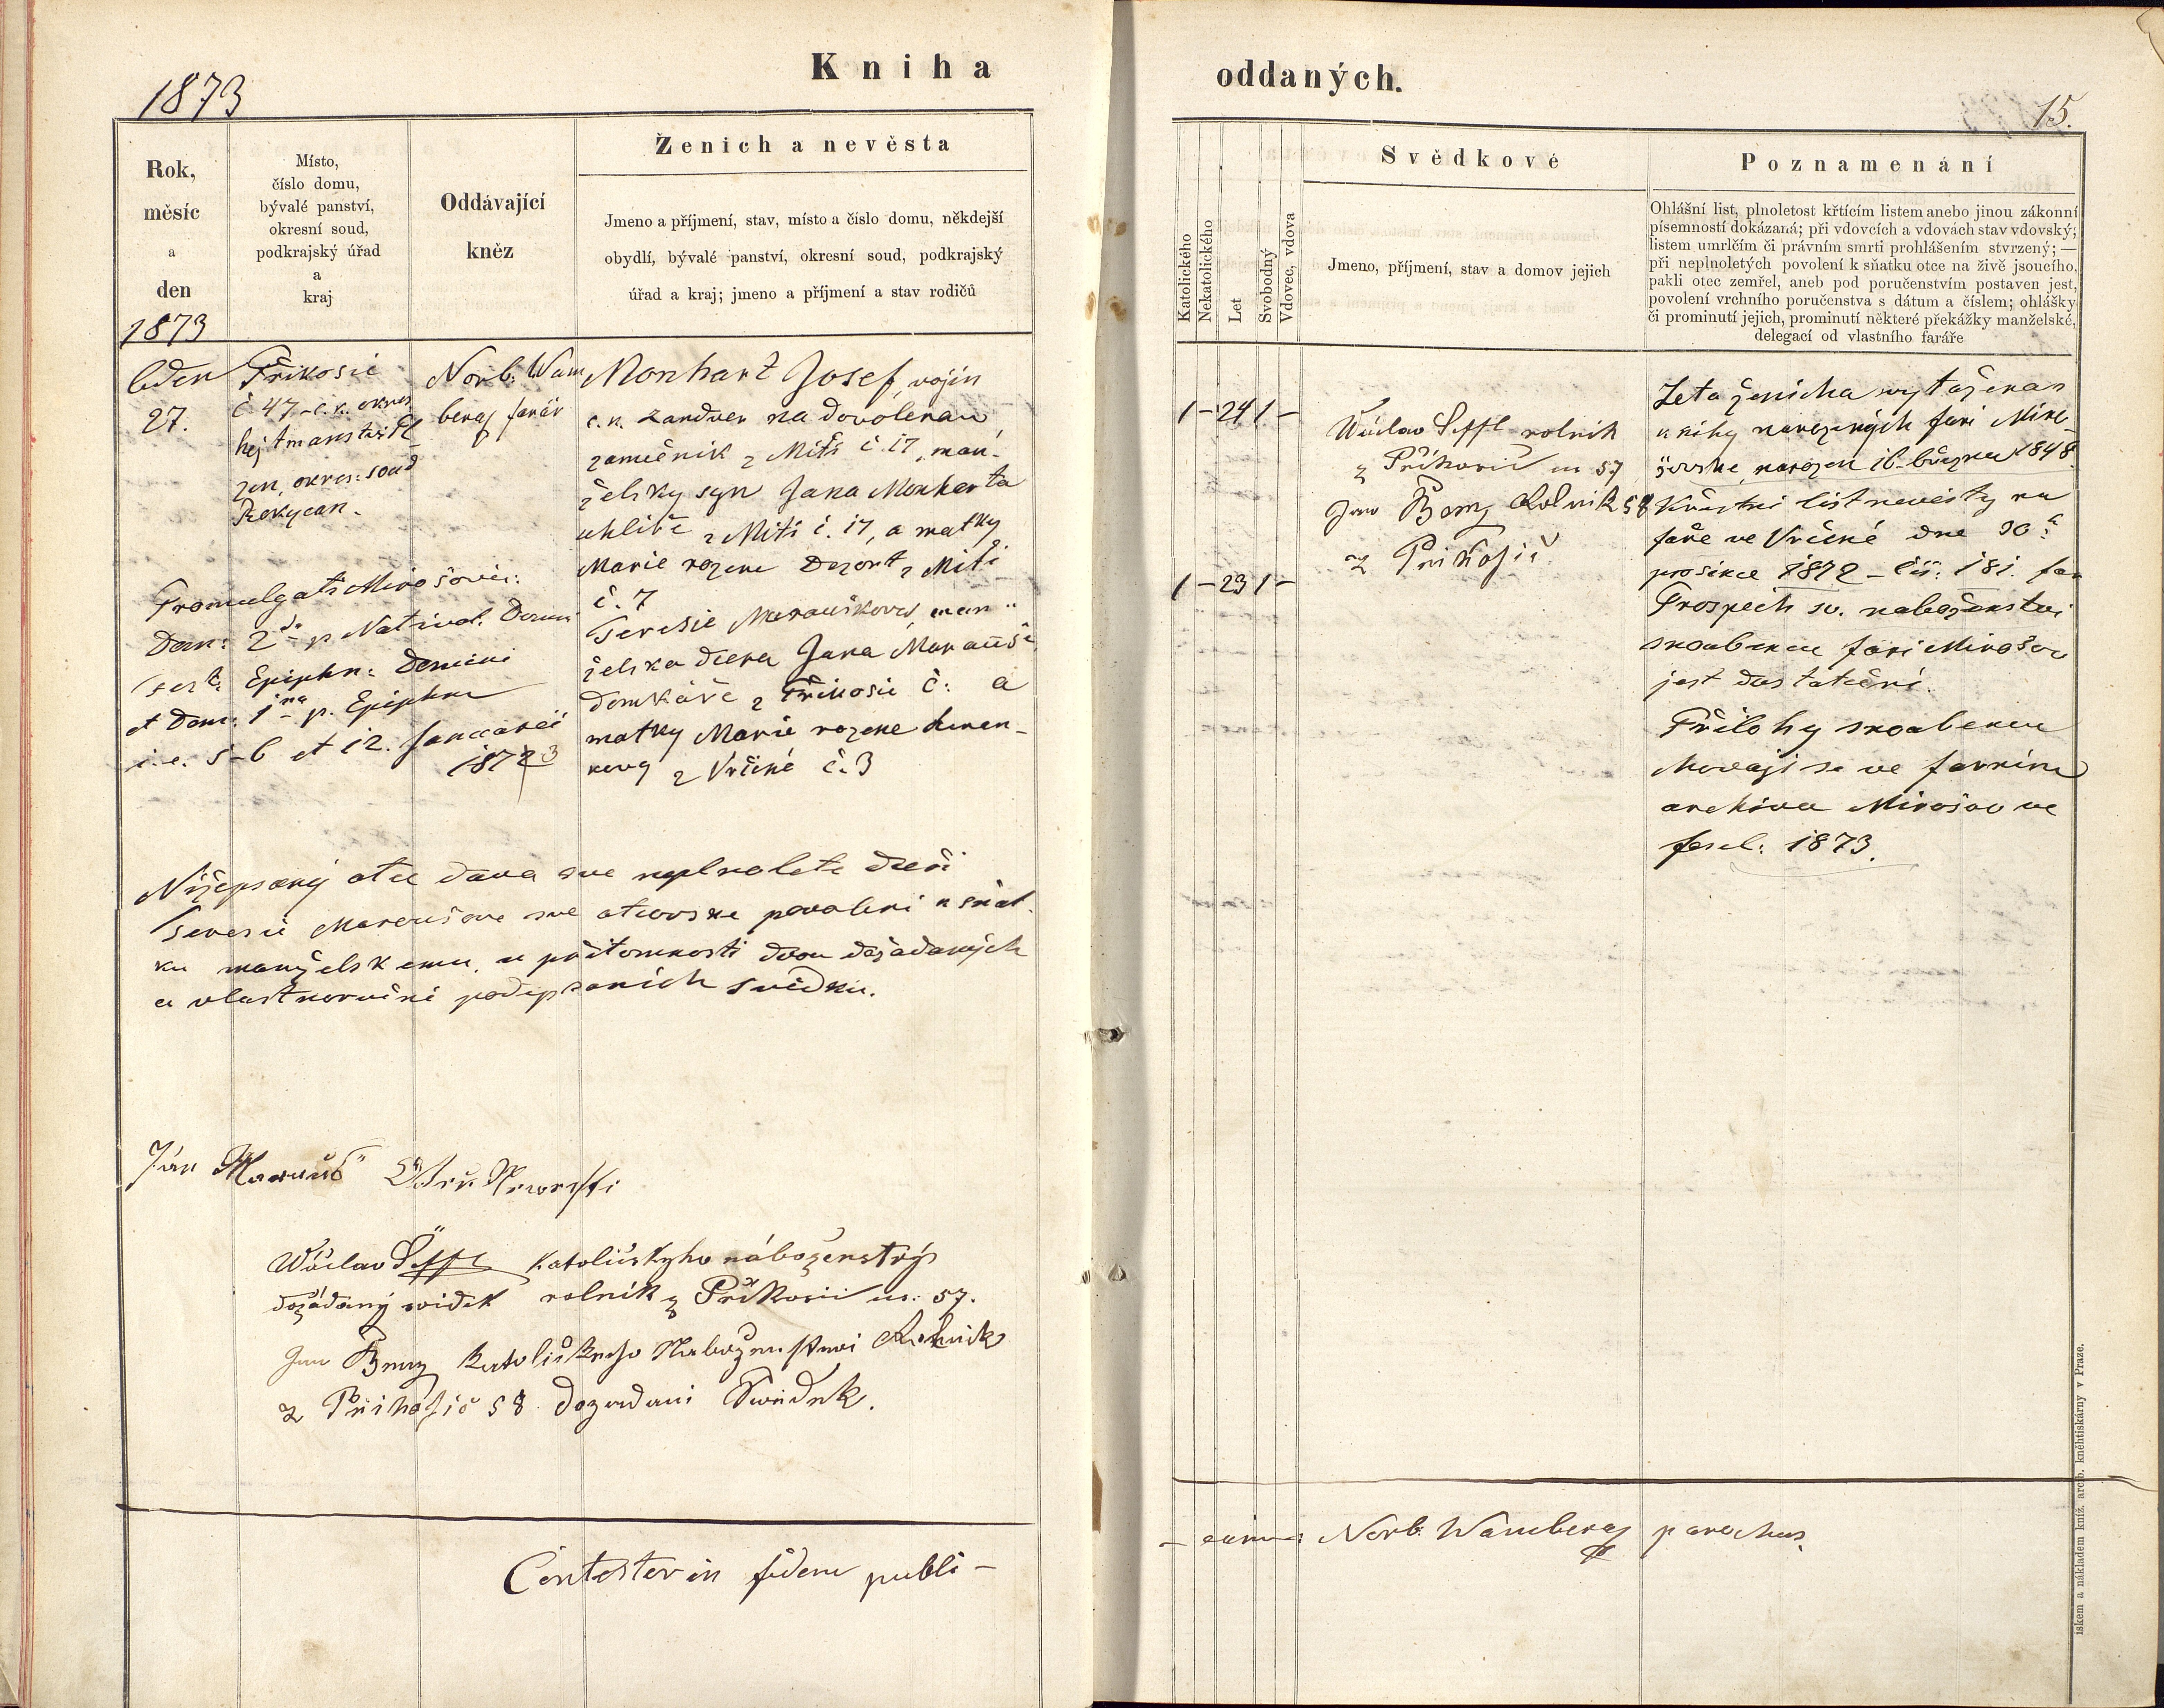 Kniha
1873
Rok,
měsíc
a
den
Místo,
číslo domu,
bývalé panství,
okresní soud,
podkrajský úřad
a
kraj
Oddávající
kněz
Ženich a nevěsta
Jmeno a příjmení, stav, místo a číslo domu, někdejší
obydlí, bývalé panství, okresní soud, podkrajský
úřad a kraj; jmeno a příjmení a stav rodičů
1873
leden
27.
Příkosic
č. 47 - c.k. okres
hejtmanství Pl
zen, okres: soud
Rokycan.
Norb: Wam
berag farář
Monhart Josef, vojín
c. k. na dovolenau
zamečník z Mítí č. 17, man-
želsky syn Jana Monharta
uhlíře z Mítí č. 17, a matky
Marie rozene Dezort z Mítí
č. 7
Teresie Maraušková, man
želska dcera Jana Marauše
domkáře z Příkosic č: a
matky Marie rozene
z Vrčeně č. 3
Promulgati Mirošovic:
Dom: 2da p. Nativit. Domini
fest: Epiphn: Domini
et Dom: 1ma p. Epiphn
i. e. 5-6 et 12. Januarii
1873
Nížepsaný otec dava sve neplnolete dceři
Teresii Maraušove sve otcovske povoleni k sňat
ku manželskemu, u přítomnosti dvou dožadaných
a vlastnoručně podepsaních svědku.
Ján Marauš
Wáclav Šeffl katolickyho náboženstvý
dožádaný swidek rolník z Příkosic us: 57.
Jan Beny katolickeho Nabozenstwi Rolnik
z Přikosic 58 dozadani Swědek.
Contestor in fidem publi-
oddaných.
15.
Katolického
Nekatolického
Let
Svobodný
Vdovec, vdova
Svědkové
Jmeno, příjmení, stav a domov jejich
Poznamenání
Ohlášní list, plnoletost křtícím listem anebo jinou zákonní
písemností dokázaná; při vdovcích a vdovách stav vdovský;
listem umrlčím či právním smrti prohlášením stvrzený; —
při neplnoletých povolení k sňatku otce na živě jsoucího,
pakli otec zemřel, aneb pod poručenstvím postaven jest,
povolení vrchního poručenstva s dátum a číslem; ohlášky
či prominutí jejich, prominutí některé překážky manželské,
delegací od vlastního faráře
1 - 24 1 -
Wáclav Šeffl rolnik
z Příkosic us 57
Jan Beny Rolnik 58
z Prikosic
1 - 23 1 -
Leta ženicha wytažena z
knihy narozených fari Miro-
šovske, narozen 16. března 1848.
Křestni list nevěsty na
faře ve Vrčeně dne 30:
prosince 1872 - čís: 181. far
Prospěch sv. naboženstvi
snoubencu fari Mirošov
jest dostatečni.
Přilohy snoubencu
chovaji se ve farním
archivu Mirošov ve
fascl: 1873.
Norb: Wamberag parochus.
iskem a nákladem kníž. arcib. knihtiskárny v Praze.